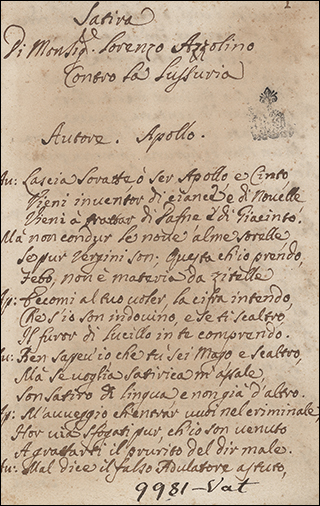 1
Satira
Di Monsig.r Lorenzo Azzolino
Contro la Lussuria
Autore. Apollo.
Au: Lascia Soratte ò ser Apollo e Cinto
Vieni inventor di ciance è di Novelle
Vieni à trattar di Dafne è di Giacinto.
Mà non condur le nove alme sorelle
Se pur Vergini son: Questa ch'io prendo,
Febo, non è materia da zitelle
Ap: Eccomi al tuo voler, la cifra intendo,
Che s'io son indovino, e se ti scaltro,
Il furor di Lucillo in te comprendo.
Au: Ben sapev'io che tu sei Mago e scaltro,
Mà se voglia satirica m'assale,
Son satiro di lingua e non già d'altro.
Ap: M'avveggio ch'entrar vuoi nel criminale,
Hor via sfogati pur, ch'io son venuto
A grattarti il prurito del dir male.
Au: Mal dice il falso Adulatore astuto,
9981-Vat